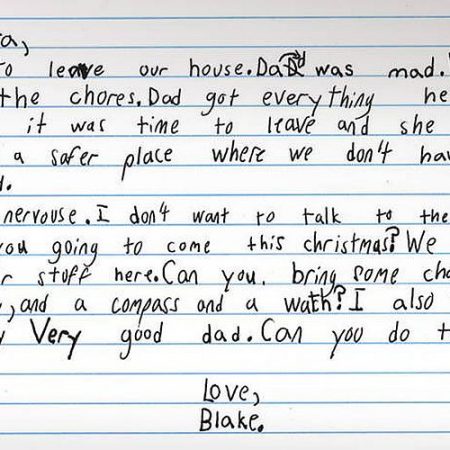 a,
to leave our house. Dad was mad.
the chores. Dad got everything he
it was time to leave and she
a safer place where we don't hav
d.
nervouse. I don't want to talk to the
you going to come this christmas? We
r stuff here. Can you. bring some ch
, and a compass and a wath? I also
y Very good dad. Can you do t
Love,
Blake.